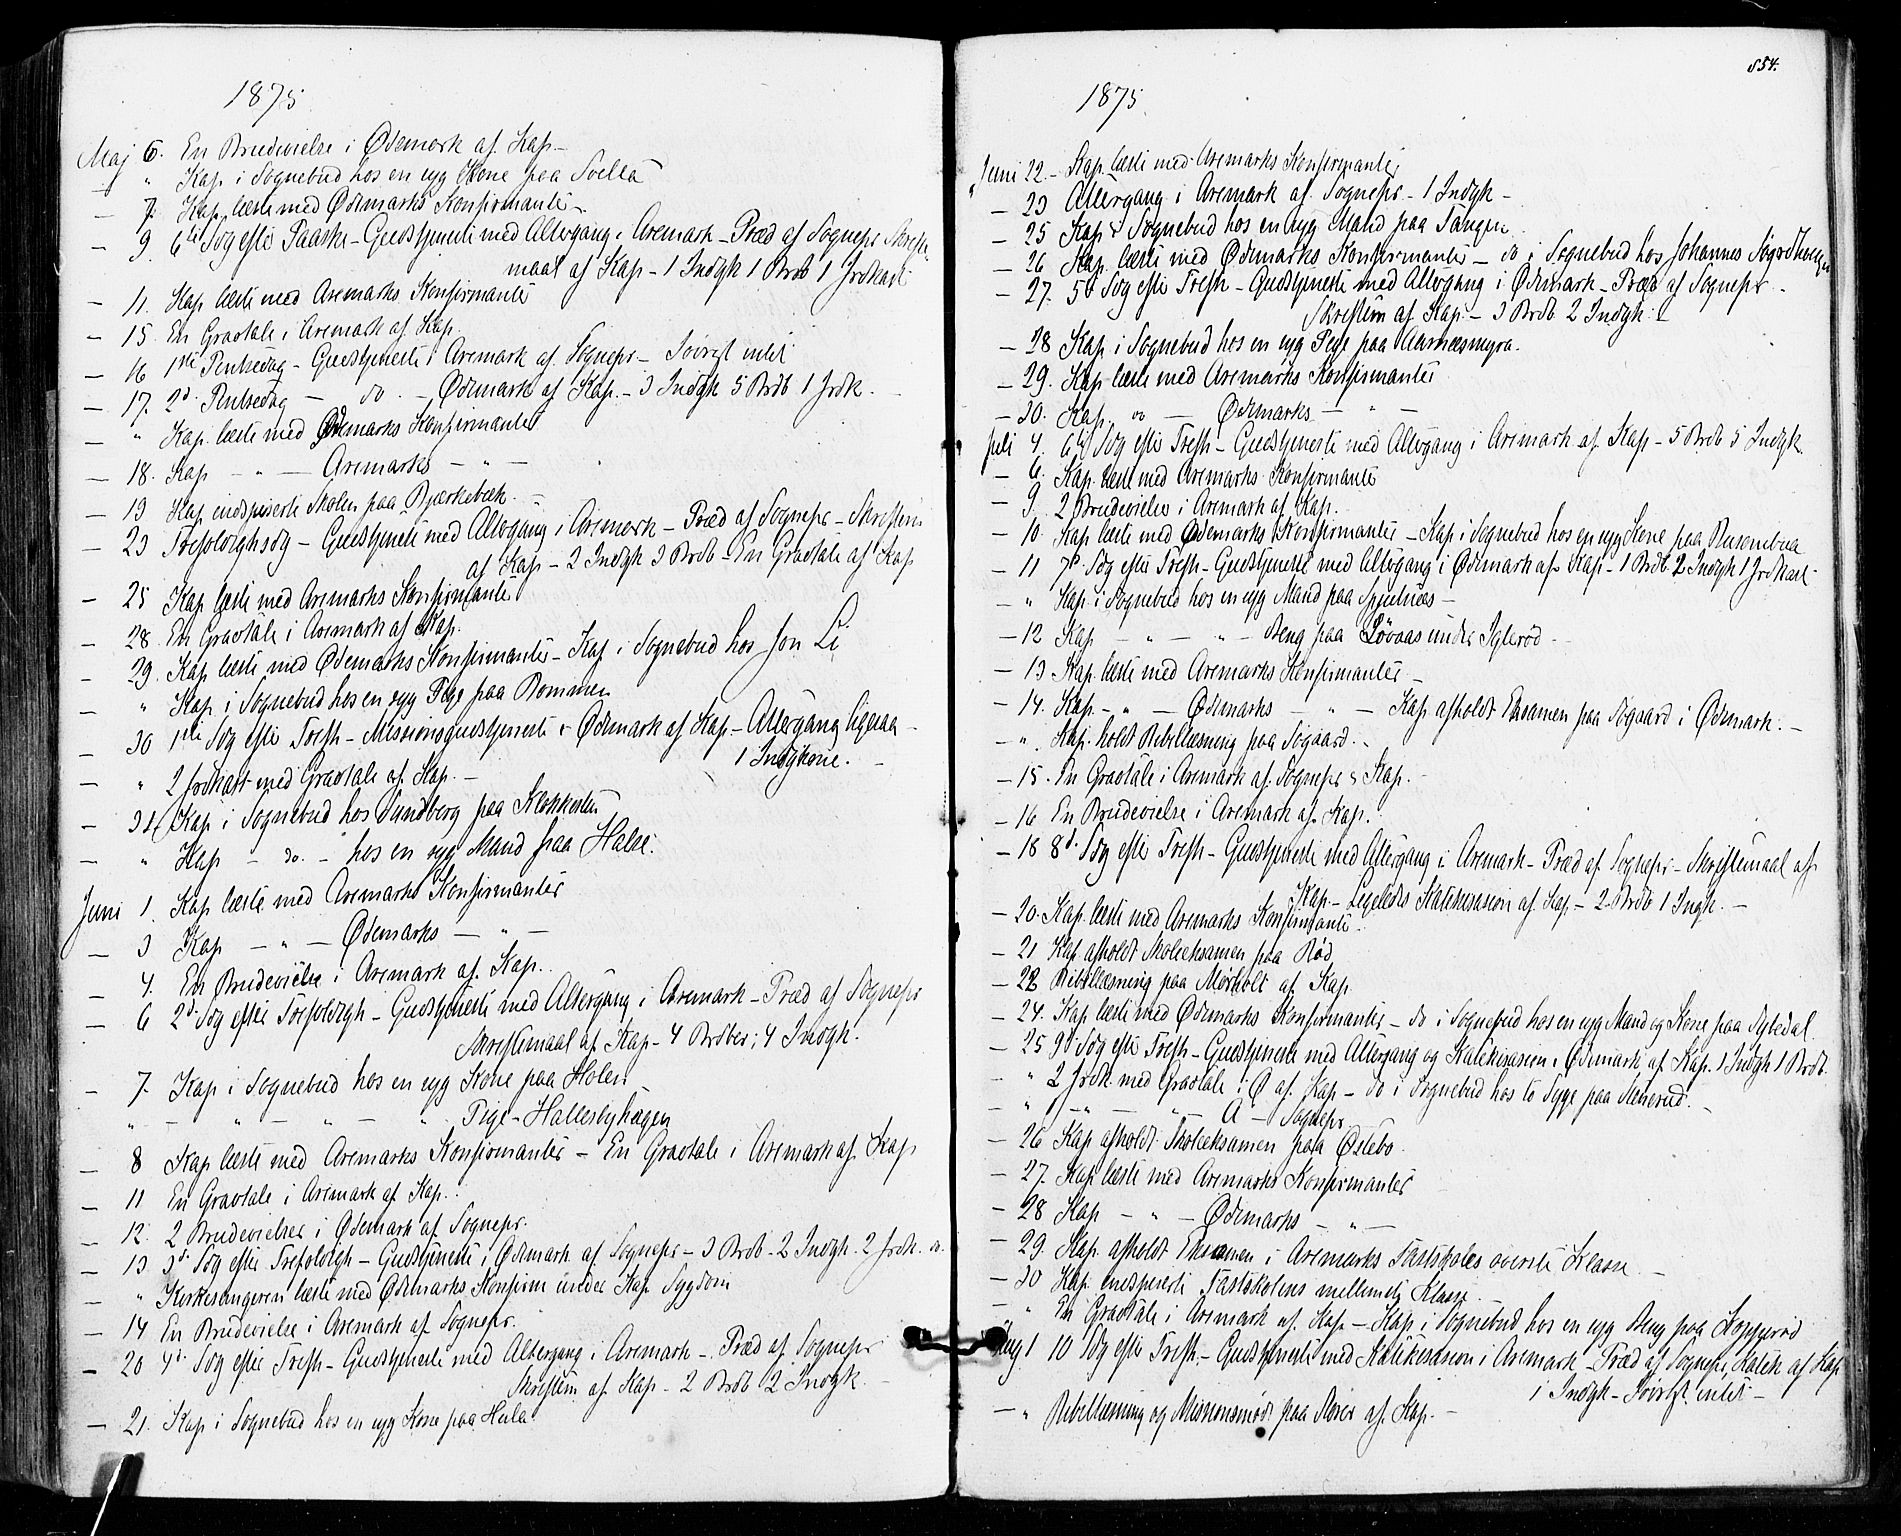 1875
Maj 6. En Brudevielse i Ødemark af Kap –
" Kap i Sognebud hos en syg Kone paa
– 7. Kap. læste med Ødemarks Konfirmanter –
– 9. 6te Søg efter Paaske – Gudstjeneste med Altergang i Aremark – Præd af Sognepr Skrifte
maal af Kap – 1 Indgk 1 Brdb 1 Jrdkast
– 11. Kap læste med Aremarks Konfirmanter
– 15. En Gravtale i Aremark af Kap.
– 16 1ste Pintsedag – Gudstjeneste i Aremark af Sognepr – Øvrigt intet
– 17. 2d. Pintsedag – do. – Ødemark af Kap. – 3 Indgk 5 Brdb 1 Jrdk. –
– " Kap. læste med Ødemarks Konfirmanter
– 18. Kap – " – Aremarks – " –
– 19 Kap. indspiserte Skolen paa Bjærkebæk. –
– 23 Trefoldighsdg – Gudstjeneste med Altergang i Aremark – Præd af Sognepr – Skriftem
af Kap – 2 Indgk 3 Brdb – En Gravtale af Kap
– 25 Kap læste med Aremarks Konfirmanter
– 28. En Gravtale i Aremark af Kap.
– 29. Kap læste med Ødemarks Konfirmanter – Kap i Sognebud hos Jon Li
– " Kap i Sognebud hos en syg Pige paa Bommen
– 30 1ste Søg efter Trefh – Missionsgudstjeneste i Ødemark af Kap – Altergang ligesaa –
1 Indgkone. –
– " 2 Jrdkast med Gravtale af Kap. –
– 31 Kap i Sognebud hos Sundberg paa
– " Kap – do. – hos en syg Mand paa
Juni 1. Kap læste med Aremarks Konfirmanter
– 3 Kap – " – Ødemarks – " –
– 4. En Brudevielse i Aremark af Kap.
– 6 2d. Søg efter Trefoldigh – Gudstjeneste med Altergang i Aremark – Præd af Sognepr
Skriftemaal af Kap – 4 Brdber; 4 Indgk.
– 7. Kap i Sognebud hos en syg Kone paa Holen
" – " – " – " Pige – Hallesbyhagen
– 8 Kap læste med Aremarks Konfirmanter – En Gravtale i Aremark af Kap
– 11 En Gravtale i Aremark af Kap.
– 12. 2 Brudevielser i Ødemark af Sognepr.
– 13 3d. Søg efter Trefoldigh – Gudstjeneste i Ødemark af Sognepr – 3 Brdb – 2 Indgk. 2 Jrdk.
– " Kirkesangeren læste med Ødemarks Konfirm under Kap Sygdom
– 14 En Brudevielse i Aremark af Sognepr.
– 20 4d. Søg efter Trefh – Gudstjeneste med Altergang i Aremark – Præd af Sognepr
Skriftem af Kap – 2 Brdb 2 Indgk. –
– 21. Kap i Sognebud hos en syg Kone paa
854.
1875
Juni 22 – Kap. læste med Aremarks Konfirmanter
– 23 Altergang i Aremark af Sognepr – 1 Indgk –
– 25 Kap i Sognebud hos en syg Mand paa Tangen
– 26 Kap. læste med Ødemarks Konfirmanter – do i Sognebud hos Johannes
– 27. 5d Søg efter Trefh – Gudstjeneste med Altergang i Ødemark – Præd af Sognepr. –
Skriftem af Kap. – 3 Brdb. 2 Indgk. –
– 28 Kap i Sognebud hos en syg Pige paa Aarnæsmyra.
– 29. Kap læste med Aremarks Konfirmanter
– 30. Kap. do – Ødemarks – " –
Juli 4. 6te Søg efter Trefh – Gudstjeneste med Altergang i Aremark af Kap – 5 Brdb 5 Indgk
– 6. Kap læste med Aremarks Konfirmanter
– 9. 2 Brudevielser i Aremark af Kap.
– 10. Kap læste med Ødemarks Konfirmanter – Kap i Sognebud hos en syg Kone paa
– 11 7de Søg efter Trefh – Gudstjeneste med Altergang i Ødemark af Kap – 1 Brdb 2 Indgk 1 Jrdkast –
– " Kap i Sognebud hos en syg Mand paa
– 12 Kap – " – " – Dreng paa Løvaas under Iglerød –
– 13 Kap. læste med Aremarks Konfirmanter –
– 14. Kap. – " – Ødemarks – " – Kap afholdt Eksamen paa Søgaard i Ødemark. –
– " Kap. holdt Bibellæsning paa Søgaard. –
– 15. En Gravtale i Aremark af Sognepr & Kap. –
– 16 En Brudevielse i Aremark af Kap.
– 18 8d. Søg efter Trefh – Gudstjeneste med Altergang i Aremark – Præd af Sognepr – Skriftemaal af
Kap – Ligeledes Katekisasion af Kap – 2 Brdb 1 Ingk. –
– 20. Kap læste med Aremarks Konfirmanter –
– 21 Kap afholdt Skoleeksamen paa Rød
– 22 Bibellæsning paa Mørholt af Kap
– 24. Kap læste med Ødemarks Konfirmanter – do i Sognebud hos en syg Mand og Kone paa Nybedal
– 25 9d Søg efter Trefh – Gudstjeneste med Altergang og Katekisasion i Ødemark af Kap. 1 Indgk 1 Brdb.
– " 2 Jrdk. med Gravtale i Ø af Kap – do i Sognebud hos to Syge paa
– " – " – " – A – Sognepr
– 26 Kap afholdt Skoleeksamen paa Østebø.
– 27. Kap læste med Aremarks Konfirmanter
– 28 Kap – " – Ødemarks – " –
– 29. Kap. afholdt Eksamen i Aremarks Fastskoles øverste Klasse –
– 30 Kap. indspiserte Fastskolens mellemste Klasse –
– " En Gravtale i Aremark af Kap – Kap i Sognebud hos en syg Dreng paa
Aug 1 10 Søg efter Trefh. – Gudstjeneste med Katekisasion i Aremark – Præd af Sognepr, Katek af Kap
1 Indgk – Øvrigt intet –
– " Bibellæsning og Missionsmøde paa af Kap. –